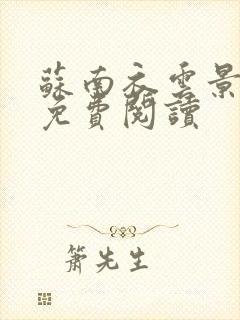 蘇南衣雲景
免費閱讀
簫先生